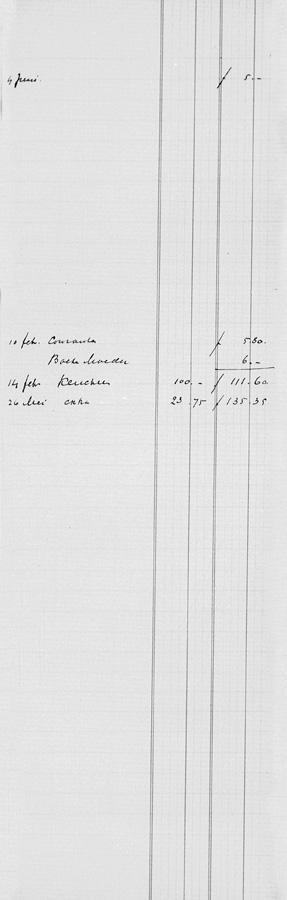 4 Juni. ƒ 5.–
10 feb. Couranta ƒ 5.60.
Boeke Moeder 6.–
14 feb. 100.– ƒ 111.60
26 Mei 23.75 ƒ 135.35